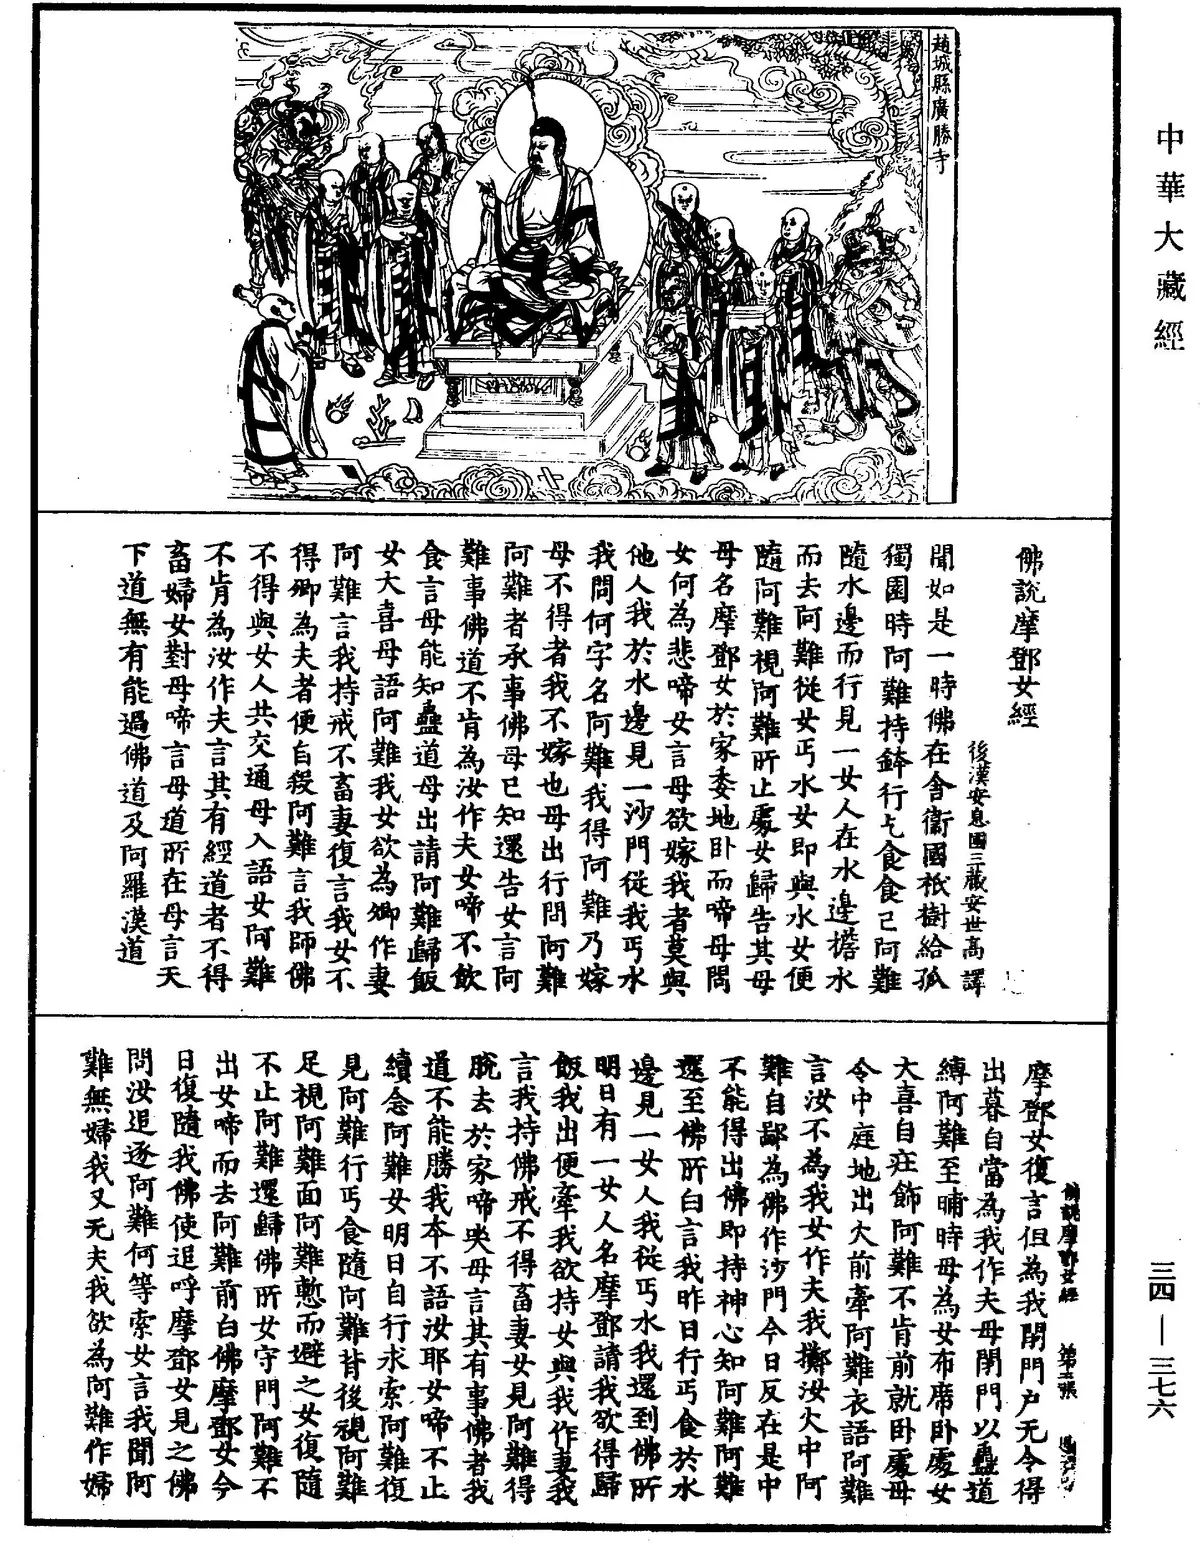 中華大藏經
趙城縣廣勝寺
佛說摩鄧女經
後漢安息國三藏安世高譯
聞如是一時佛在舍衞國祇樹給孤
獨園時阿難持鉢行乞食食已阿難
隨水邊而行見一女人在水邊擔水
而去阿難從女丐水女即與水女便
隨阿難視阿難所止處女歸告其母
母名摩鄧女於家委地卧而啼母問
女何為悲啼女言母欲嫁我者莫與
他人我於水邊見一沙門從我丐水
我問何字名阿難我得阿難乃嫁
母不得者我不嫁也母出行問阿難
阿難者承事佛母已知還告女言阿
難事佛道不肯為汝作夫女啼不飲
食言母能知蠱道母出請阿難歸飯
女大喜母語阿難我女欲為卿作妻
阿難言我持戒不畜妻復言我女不
得卿為夫者便自殺阿難言我師佛
不得與女人共交通母入語女阿難
不肯為汝作夫言其有經道者不得
畜婦女對母啼言母道所在母言天
下道無有能過佛道及阿羅漢道
摩鄧女復言但為我閉門户无令得
出暮自當為我作夫母閉門以蠱道
縛阿難至晡時母為女布席卧處女
大喜自莊飾阿難不肯前就卧處母
令中庭地出火前牽阿難衣語阿難
言汝不為我女作夫我擲汝火中阿
難自鄙為佛作沙門今日反在是中
不能得出佛即持神心知阿難阿難
還至佛所白言我昨日行丐食於水
邊見一女人我從丐水我還到佛所
明日有一女人名摩鄧請我欲得歸
飯我出便牽我欲持女與我作妻我
言我持佛戒不得畜妻女見阿難得
脫去於家啼哭母言其有事佛者我
道不能勝我本不語汝耶女啼不止
續念阿難女明日自行求索阿難復
見阿難行丐食隨阿難背後視阿難
足視阿難面阿難慙而避之女復隨
不止阿難還歸佛所女守門阿難不
出女啼而去阿難前白佛摩鄧女今
日復隨我佛使追呼摩鄧女見之佛
問汝追逐阿難何等索女言我聞阿
難無婦我又无夫我欲為阿難作婦
佛說摩鄧女經　第二張
三四—三七六